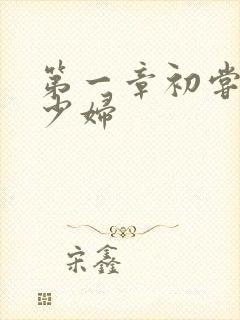 第一章初尝
少妇
宋鑫